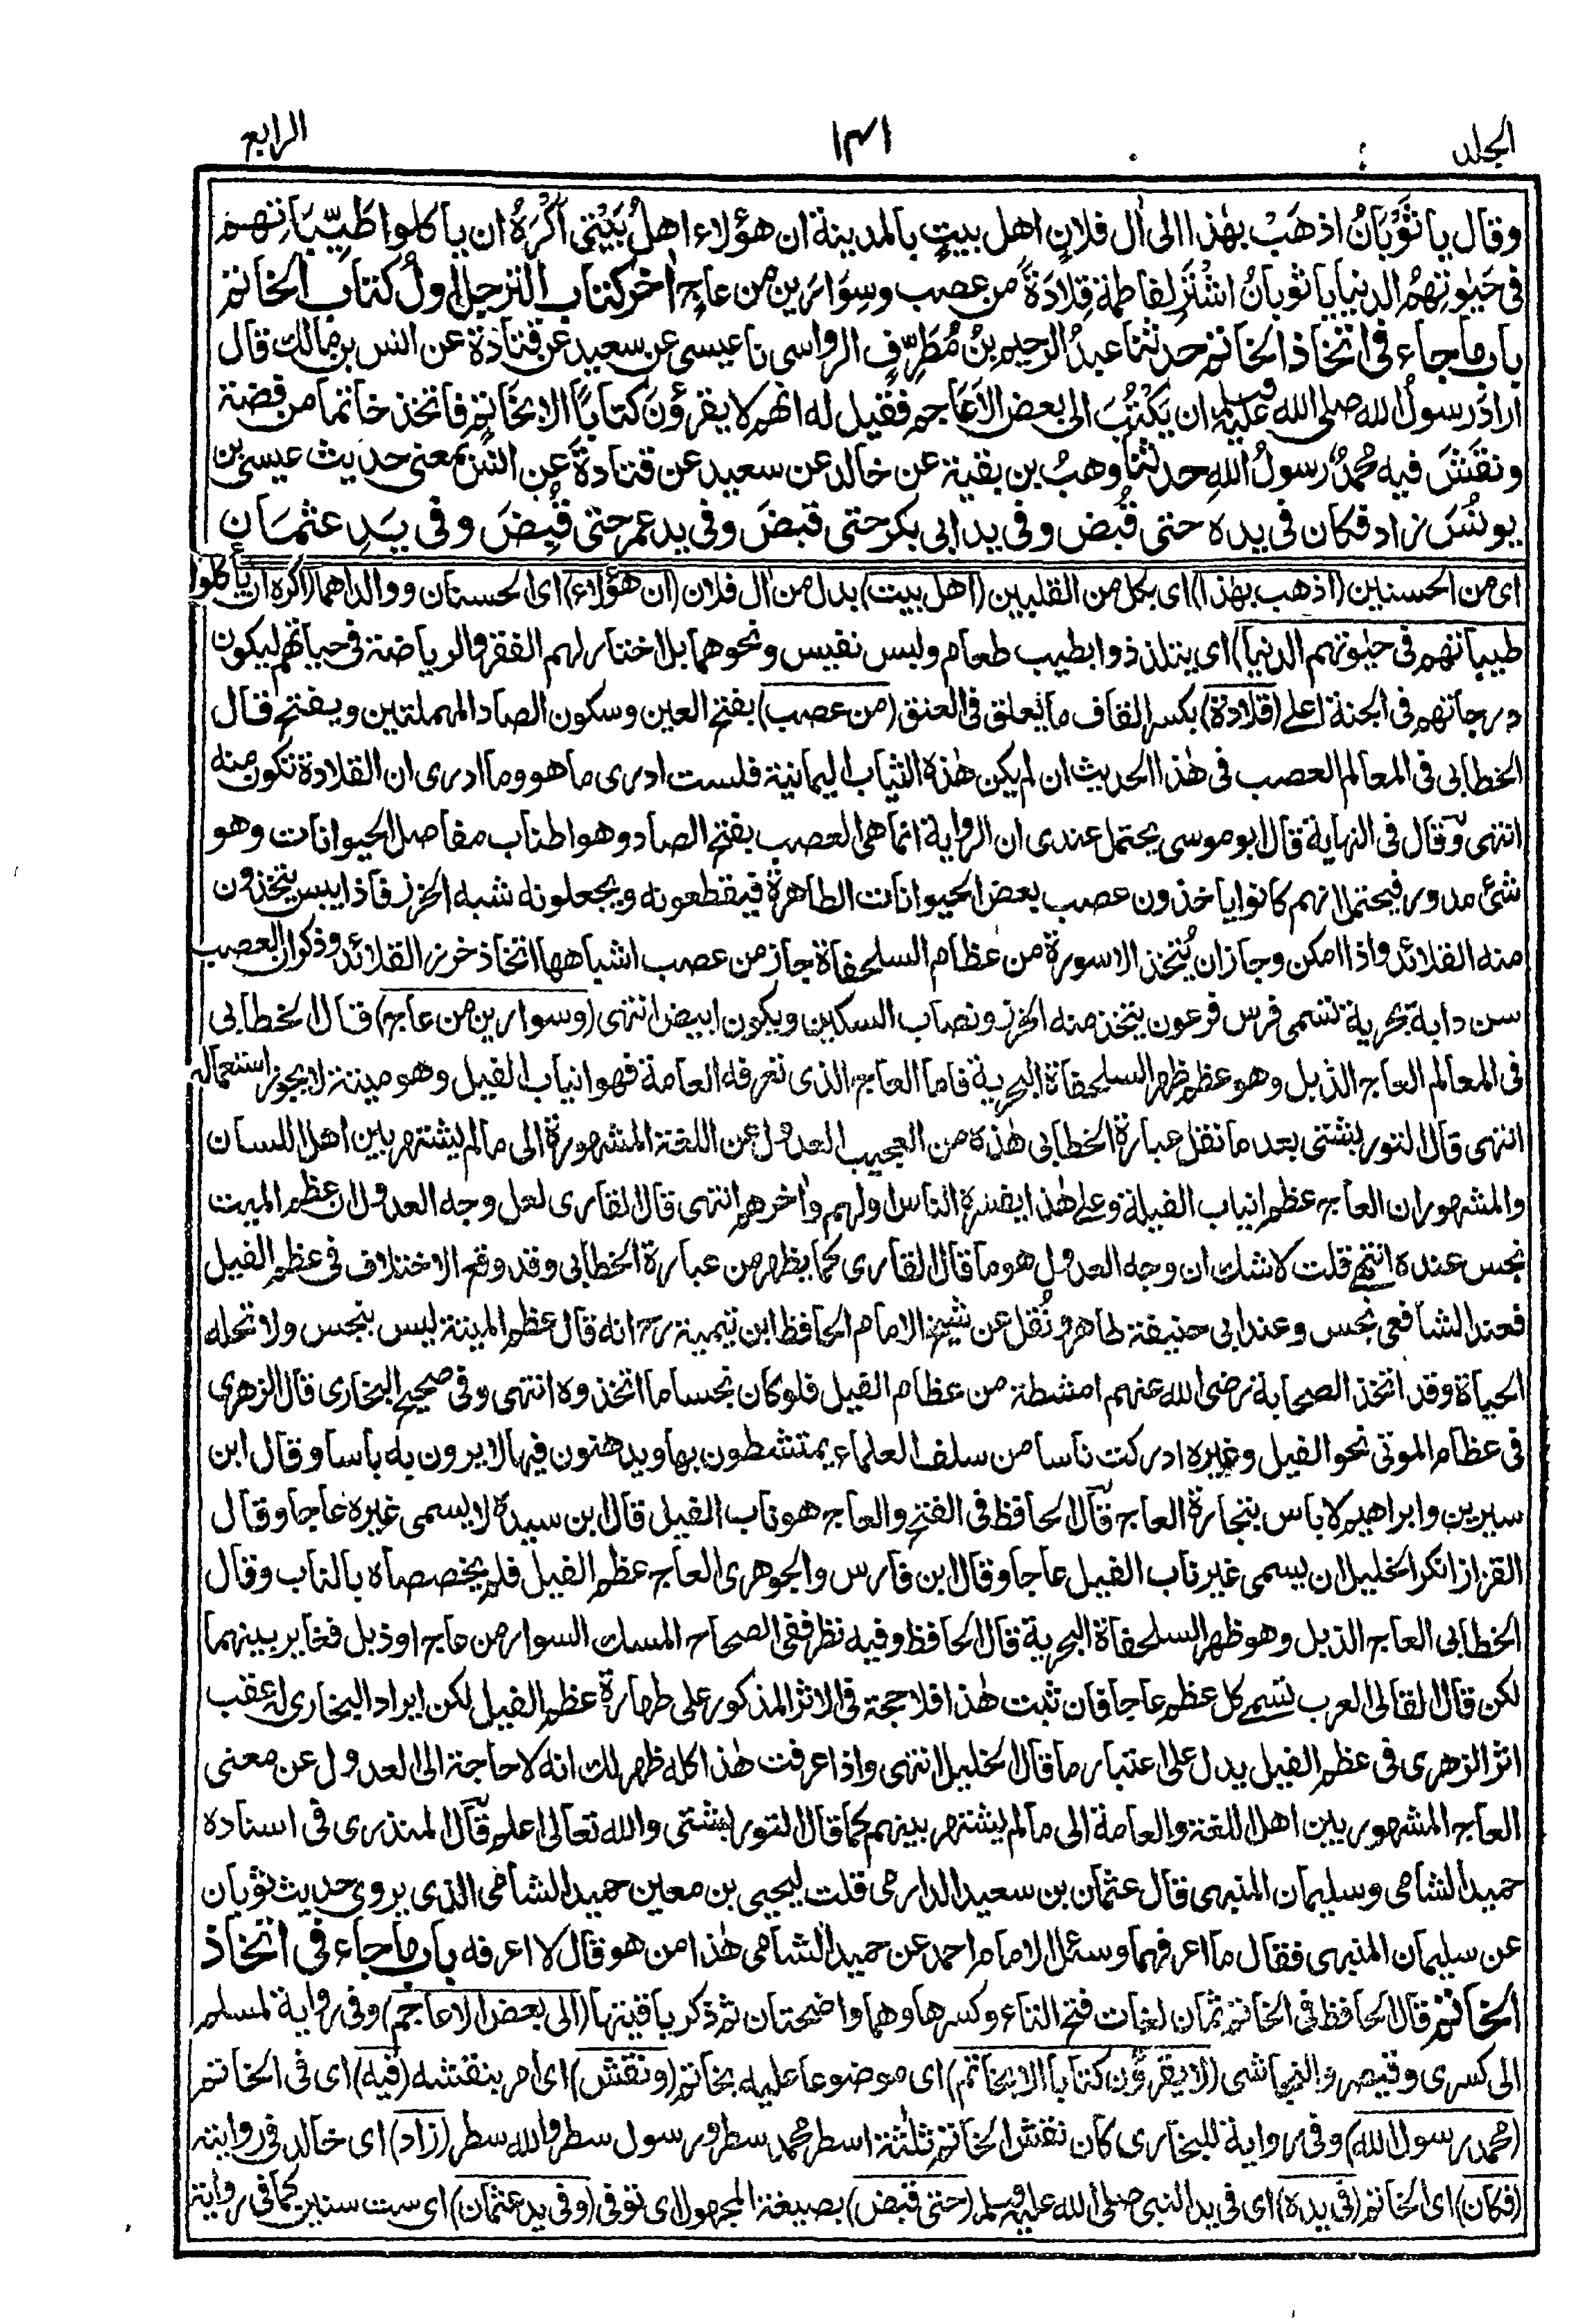 الجلد
١٤١
الرابع
وقال يا ثَوْبَانُ اذهَبْ بهٰذا الى اٰل فلانٍ اهل بيتٍ بالمدينة ان هؤلاء اهلُ بَيْتِي اَكْرَهُ ان ياكلوا طَيِّبَاتِهم
فى حَيٰوتِهِمُ الدنيا يا ثوبانُ اشْتَرِ لفاطمة قِلادَةً من عصب وسِوَارَين من عاجٍ اٰخر كتاب الترجل اولُ كتاب الخاتم
باب ما جاء فى اتخاذ الخاتم حدثنا عبدُ الرحيم بنُ مُطَرِّفٍ الرواسى نا عيسى عن سعيد عن قتادَةَ عن انس بن مالك قال
ارادَ رسولُ الله صلى الله عليه وسلم ان يَكْتُبَ الى بعض الاَعَاجم فقيل له انهم لا يقرؤنَ كتابًا الا بخَاتمٍ فاتخذ خاتما من فضة
ونقَشَ فيه محمدٌ رسولُ اللهِ حدثنا وهبُ بن بقية عن خالد عن سعيد عن قتادةَ عن انسٍ بمعنى حديث عيسى بن
يونُسَ زاد فكان فى يده حتى قُبض وفى يد ابى بكر حتى قبضَ وفى يد عمر حتى قُبِضَ وفى يَدِ عثمَان
اى من الحسنين (اذهب بهٰذا) اى بكل من القلبين (اهل بيت) بدل من اٰل فلان (ان هؤلاء) اى الحسنان ووالداهما (اكره ان ياكلوا
طيباتهم فى حيٰوتهم الدنيا) اى يتلذذوا بطيب طعام ولبس نفيس ونحوهما بل اختار لهم الفقر والرياضة فى حياتهم ليكون
درجاتهم فى الجنة اعلى (قلادة) بكسر القاف ما يُعلق فى العنق (من عصب) بفتح العين وسكون الصاد المهملتين ويفتح قال
الخطابى فى المعالم العصب فى هٰذا الحديث ان لم يكن هٰذه الثياب اليمانية فلست ادرى ما هو وما ادرى ان القلادة تكون منه
انتهى وقال فى النهاية قال ابو موسى يحتمل عندى ان الرواية انما هى العصب بفتح الصاد وهو اطناب مفاصل الحيوانات وهو
شئ مدور فيحتمل انهم كانوا ياخذون عصب بعض الحيوانات الطاهرة فيقطعونه ويجعلونه شبه الخرز فاذا يبس يتخذون
منه القلائد واذا امكن وجاز ان يُتخذ الاسورة من عظام السلحفاة جاز من عصب اشباهها اتخاذ خرز القلائد وذكر ان العصب
سن دابة بحرية تسمى فرس فرعون يتخذ منه الخرز ونصاب السكين ويكون ابيض انتهى (وسوارين من عاج) قال الخطابى
فى المعالم العاج الذبل وهو عظم ظهر السلحفاة البحرية فاما العاج الذى تعرفه العامة فهو انياب الفيل وهو ميتة لا يجوز استعماله
انتهى قال التوربشتى بعد ما نقل عبارة الخطابى هٰذه من العجيب العدول عن اللغة المشهورة الى ما لم يشتهر بين اهل اللسان
والمشهور ان العاج عظم انياب الفيلة وعلى هٰذا يفسره الناس اولهم واٰخرهم انتهى قال القارى لعل وجه العدول ان عظم الميت
نجس عنده انتهى قلت لا شك ان وجه العدول هو ما قال القارى كما يظهر من عبارة الخطابى وقد وقع الاختلاف فى عظم الفيل
فعند الشافعى نجس وعند ابى حنيفة طاهر ونُقل عن شيخ الامام الحافظ ابن تيمية رح انه قال عظم الميتة ليس بنجس ولا تحله
الحياة وقد اتخذ الصحابة رضى الله عنهم امشطة من عظام الفيل فلو كان نجسا ما اتخذوه انتهى وفى صحيح البخارى قال الزهرى
فى عظام الموتى نحو الفيل وغيره ادركت ناسا من سلف العلماء يمتشطون بها ويدهنون فيها لا يرون به باسا وقال ابن
سيرين وابراهيم لا باس بتجارة العاج قال الحافظ فى الفتح والعاج هو ناب الفيل قال ابن سيدة لا يسمى غيره عاجا وقال
القزاز انكر الخليل ان يسمى غير ناب الفيل عاجا وقال ابن فارس والجوهرى العاج عظم الفيل فلم يخصصاه بالناب وقال
الخطابى العاج الذبل وهو ظهر السلحفاة البحرية قال الحافظ وفيه نظر ففى الصحاح المسك السوار من عاج او ذبل فغاير بينهما
لكن قال القالى العرب تسمى كل عظم عاجا فان ثبت هٰذا فلا حجة فى الاثر المذكور على طهارة عظم الفيل لكن ايراد البخارى له عقب
اثر الزهرى فى عظم الفيل يدل على اعتبار ما قال الخليل انتهى واذا عرفت هٰذا كله ظهر لك انه لا حاجة الى العدول عن معنى
العاج المشهور بين اهل اللغة والعامة الى ما لم يشتهر بينهم كما قال التوربشتى والله تعالى اعلم قال المنذرى فى اسناده
حميد الشامى وسليمان المنبهى قال عثمان بن سعيد الدارمى قلت ليحيى بن معين حميد الشامى الذى يروى حديث ثوبان
عن سليمان المنبهى فقال ما اعرفهما وسئل الامام احمد عن حميد الشامى هٰذا من هو قال لا اعرفه باب ما جاء فى اتخاذ
الخاتم قال الحافظ فى الخاتم ثمان لغات فتح التاء وكسرها وهما واضحتان ثم ذكر باقيتها (الى بعض الاعاجم) وفى رواية لمسلم
الى كسرى وقيصر والنجاشى (لا يقرؤن كتابا الا بخاتم) اى موضوعا عليه بخاتم (ونقش) اى امر بنقشه (فيه) اى فى الخاتم
(محمد رسول الله) وفى رواية للبخارى كان نقش الخاتم ثلٰثة اسطر محمد سطر ورسول سطر والله سطر (زاد) اى خالد فى روايته
(فكان) اى الخاتم (فى يده) اى فى يد النبى صلى الله عليه وسلم (حتى قبض) بصيغة المجهول اى توفى (وفى يد عثمان) اى ست سنين كما فى رواية